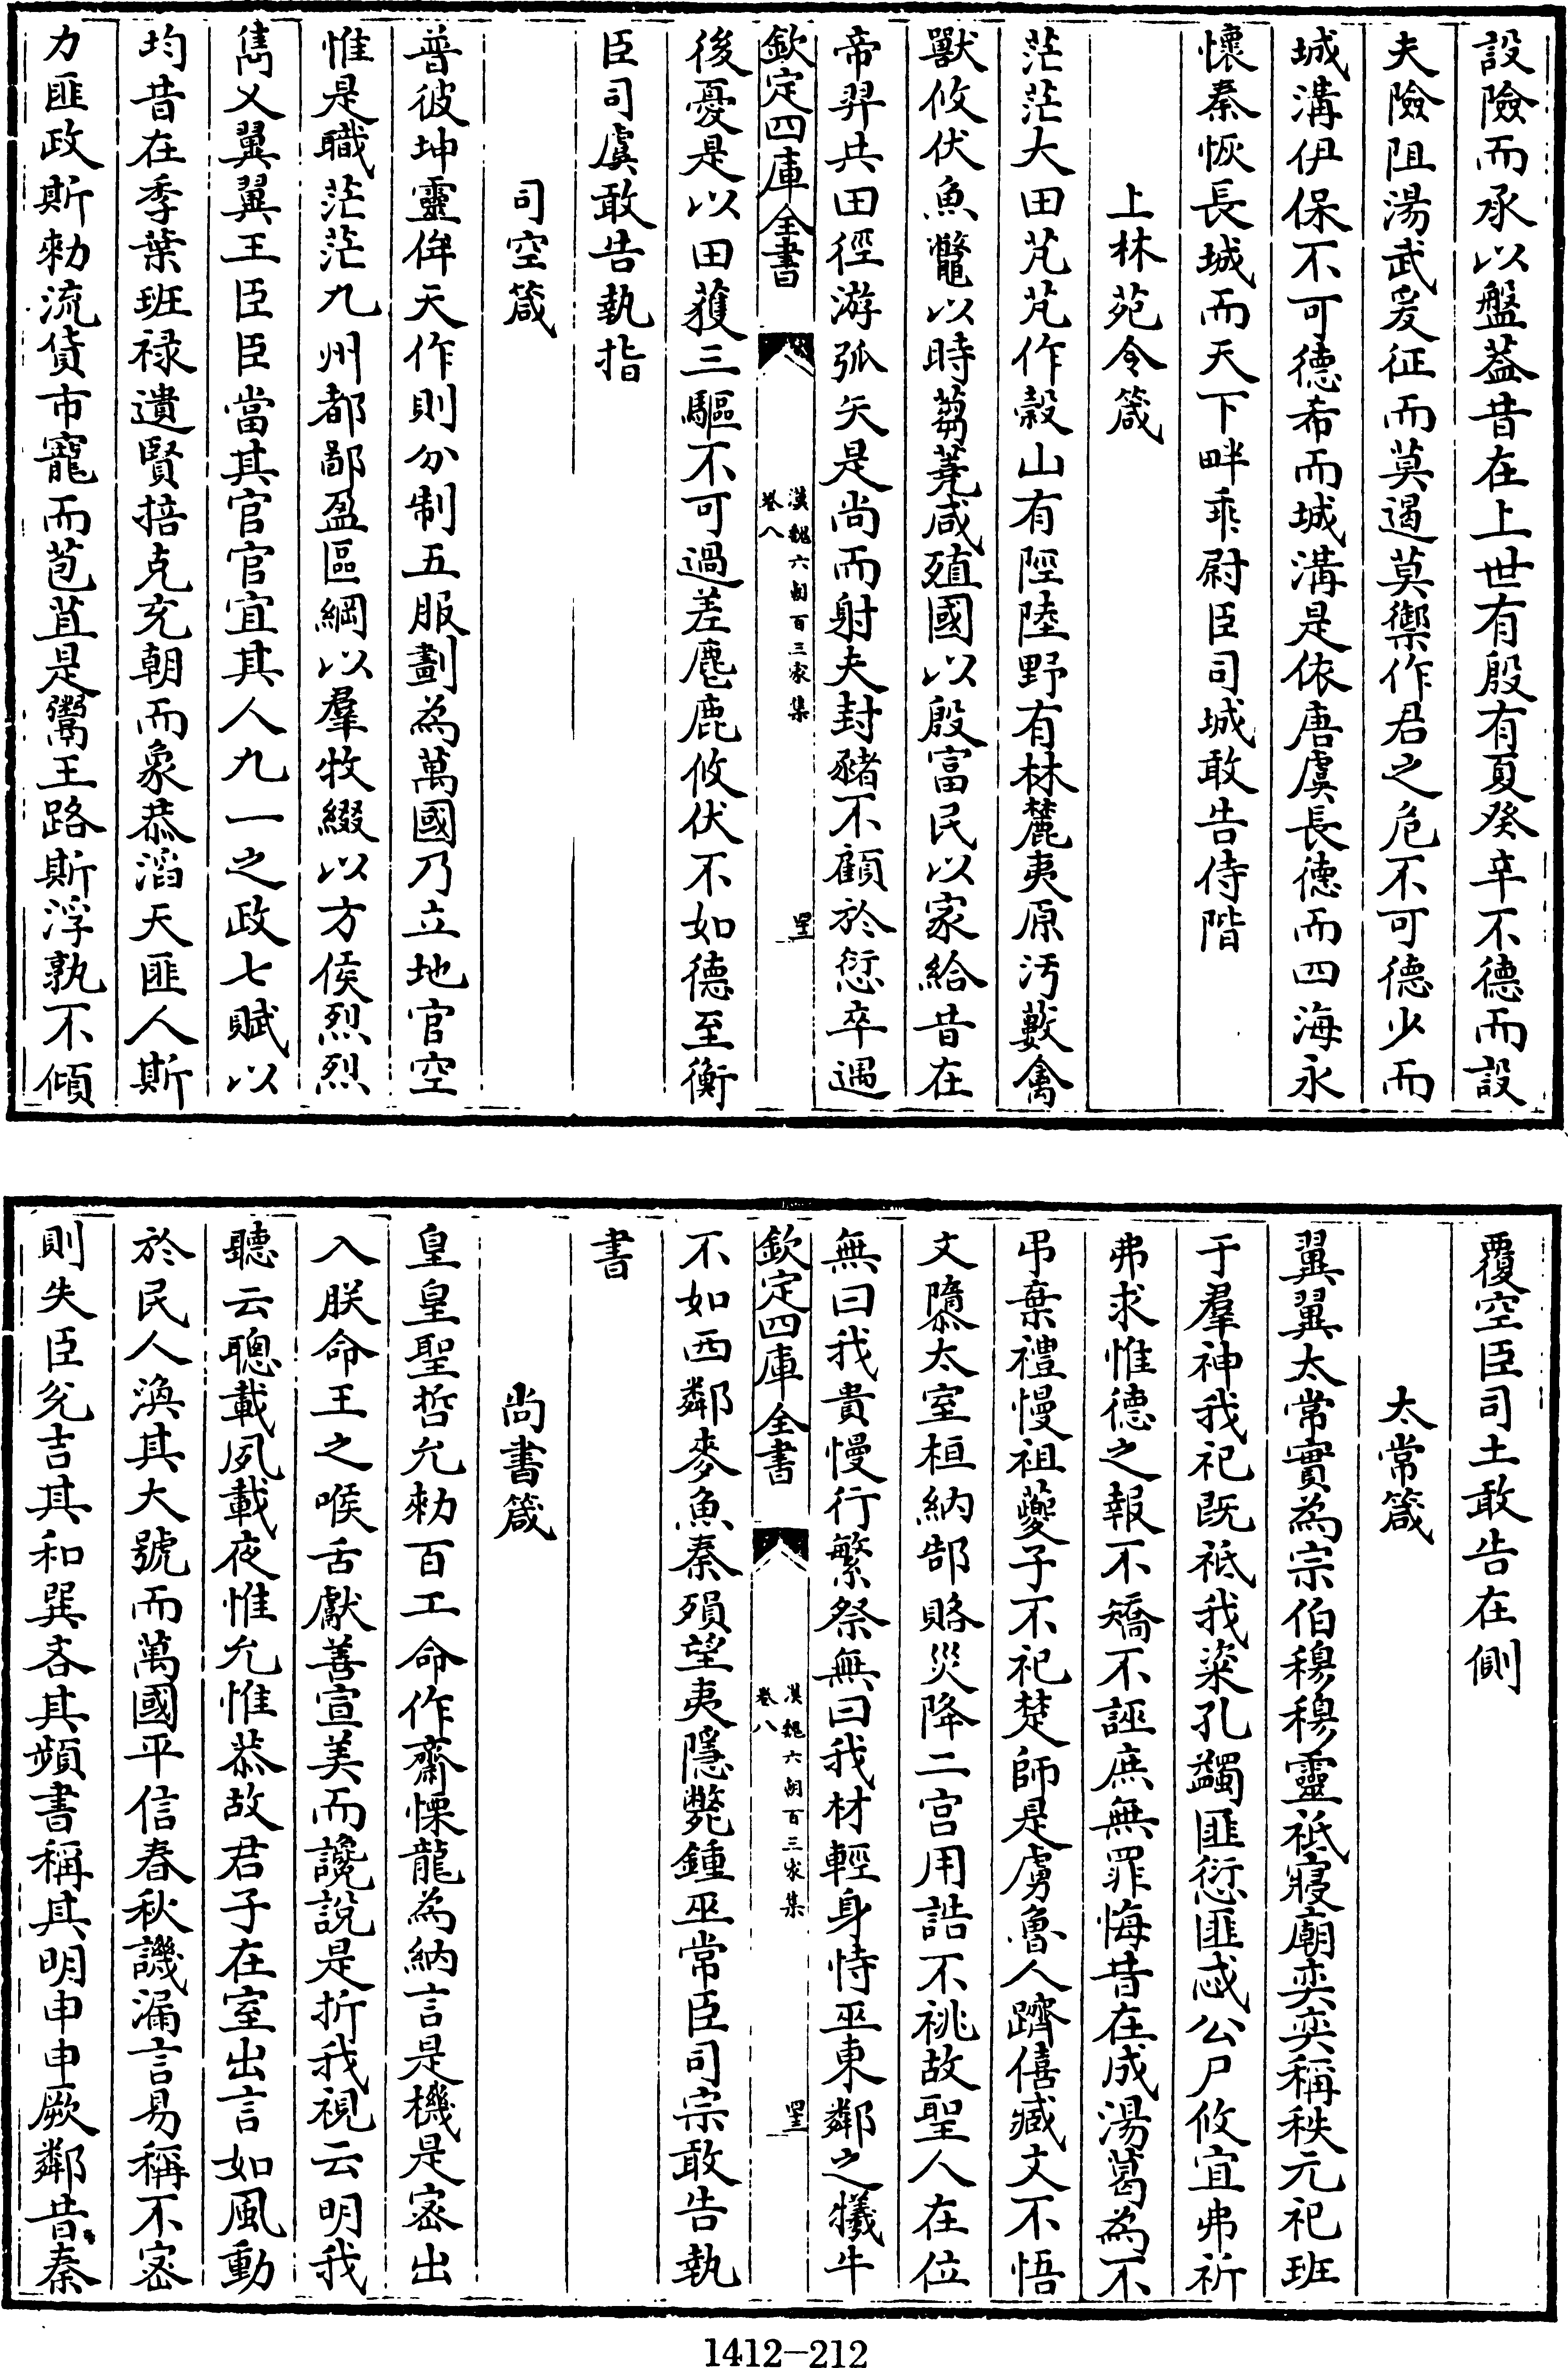 設險而承以盤葢昔在上世有殷有夏癸辛不德而設
夫險阻湯武爰征而莫遏莫禦作君之危不可德少而
城溝伊保不可德希而城溝是依唐虞長德而四海永
懷秦恢長城而天下畔乖尉臣司城敢告侍階
上林苑令箴
茫茫大田芃芃作穀山有陘陸野有林麓夷原汚藪禽
獸攸伏魚鼈以時芻蕘咸殖國以殷富民以家給昔在
帝羿共田徑游弧矢是尚而射夫封豬不顧於愆卒遇
欽定四庫全書
漢魏六朝百三家集
卷八
後憂是以田獲三驅不可過差麀鹿攸伏不如德至衡
臣司虞敢告執指
司空箴
普彼坤靈侔天作則分制五服劃為萬國乃立地官空
惟是職茫茫九州都鄙盈區綱以羣牧綴以方侯烈烈
雋乂翼翼王臣臣當其官官宜其人九一之政七賦以
均昔在季葉班禄遺賢掊克充朝而象恭滔天匪人斯
力匪政斯勑流貨市寵而苞苴是鬻王路斯浮孰不傾
覆空臣司土敢告在側
太常箴
翼翼太常實為宗伯穆穆靈祗寢廟奕奕稱秩元祀班
于羣神我祀既祗我粢孔蠲匪愆匪忒公尸攸宜弗祈
弗求惟德之報不矯不誣庶無罪悔昔在成湯葛為不
弔棄禮慢祖夔子不祀楚師是虜魯人躋僖臧文不悟
文隳太室桓納郜賂災降二宫用誥不祧故聖人在位
無曰我貴慢行繁祭無曰我材輕身恃巫東鄰之犧牛
欽定四庫全書
漢魏六朝百三家集
卷八
不如西鄰麥魚秦殞望夷隱斃鍾巫常臣司宗敢告執
書
尚書箴
皇皇聖哲允勑百工命作齋慄龍為納言是機是密出
入朕命王之喉舌獻善宣美而讒說是折我視云明我
聽云聰載夙載夜惟允惟恭故君子在室出言如風動
於民人渙其大號而萬國平信春秋譏漏言易稱不密
則失臣兌吉其和巽吝其頻書稱其明申申厥鄰昔秦
1412-212